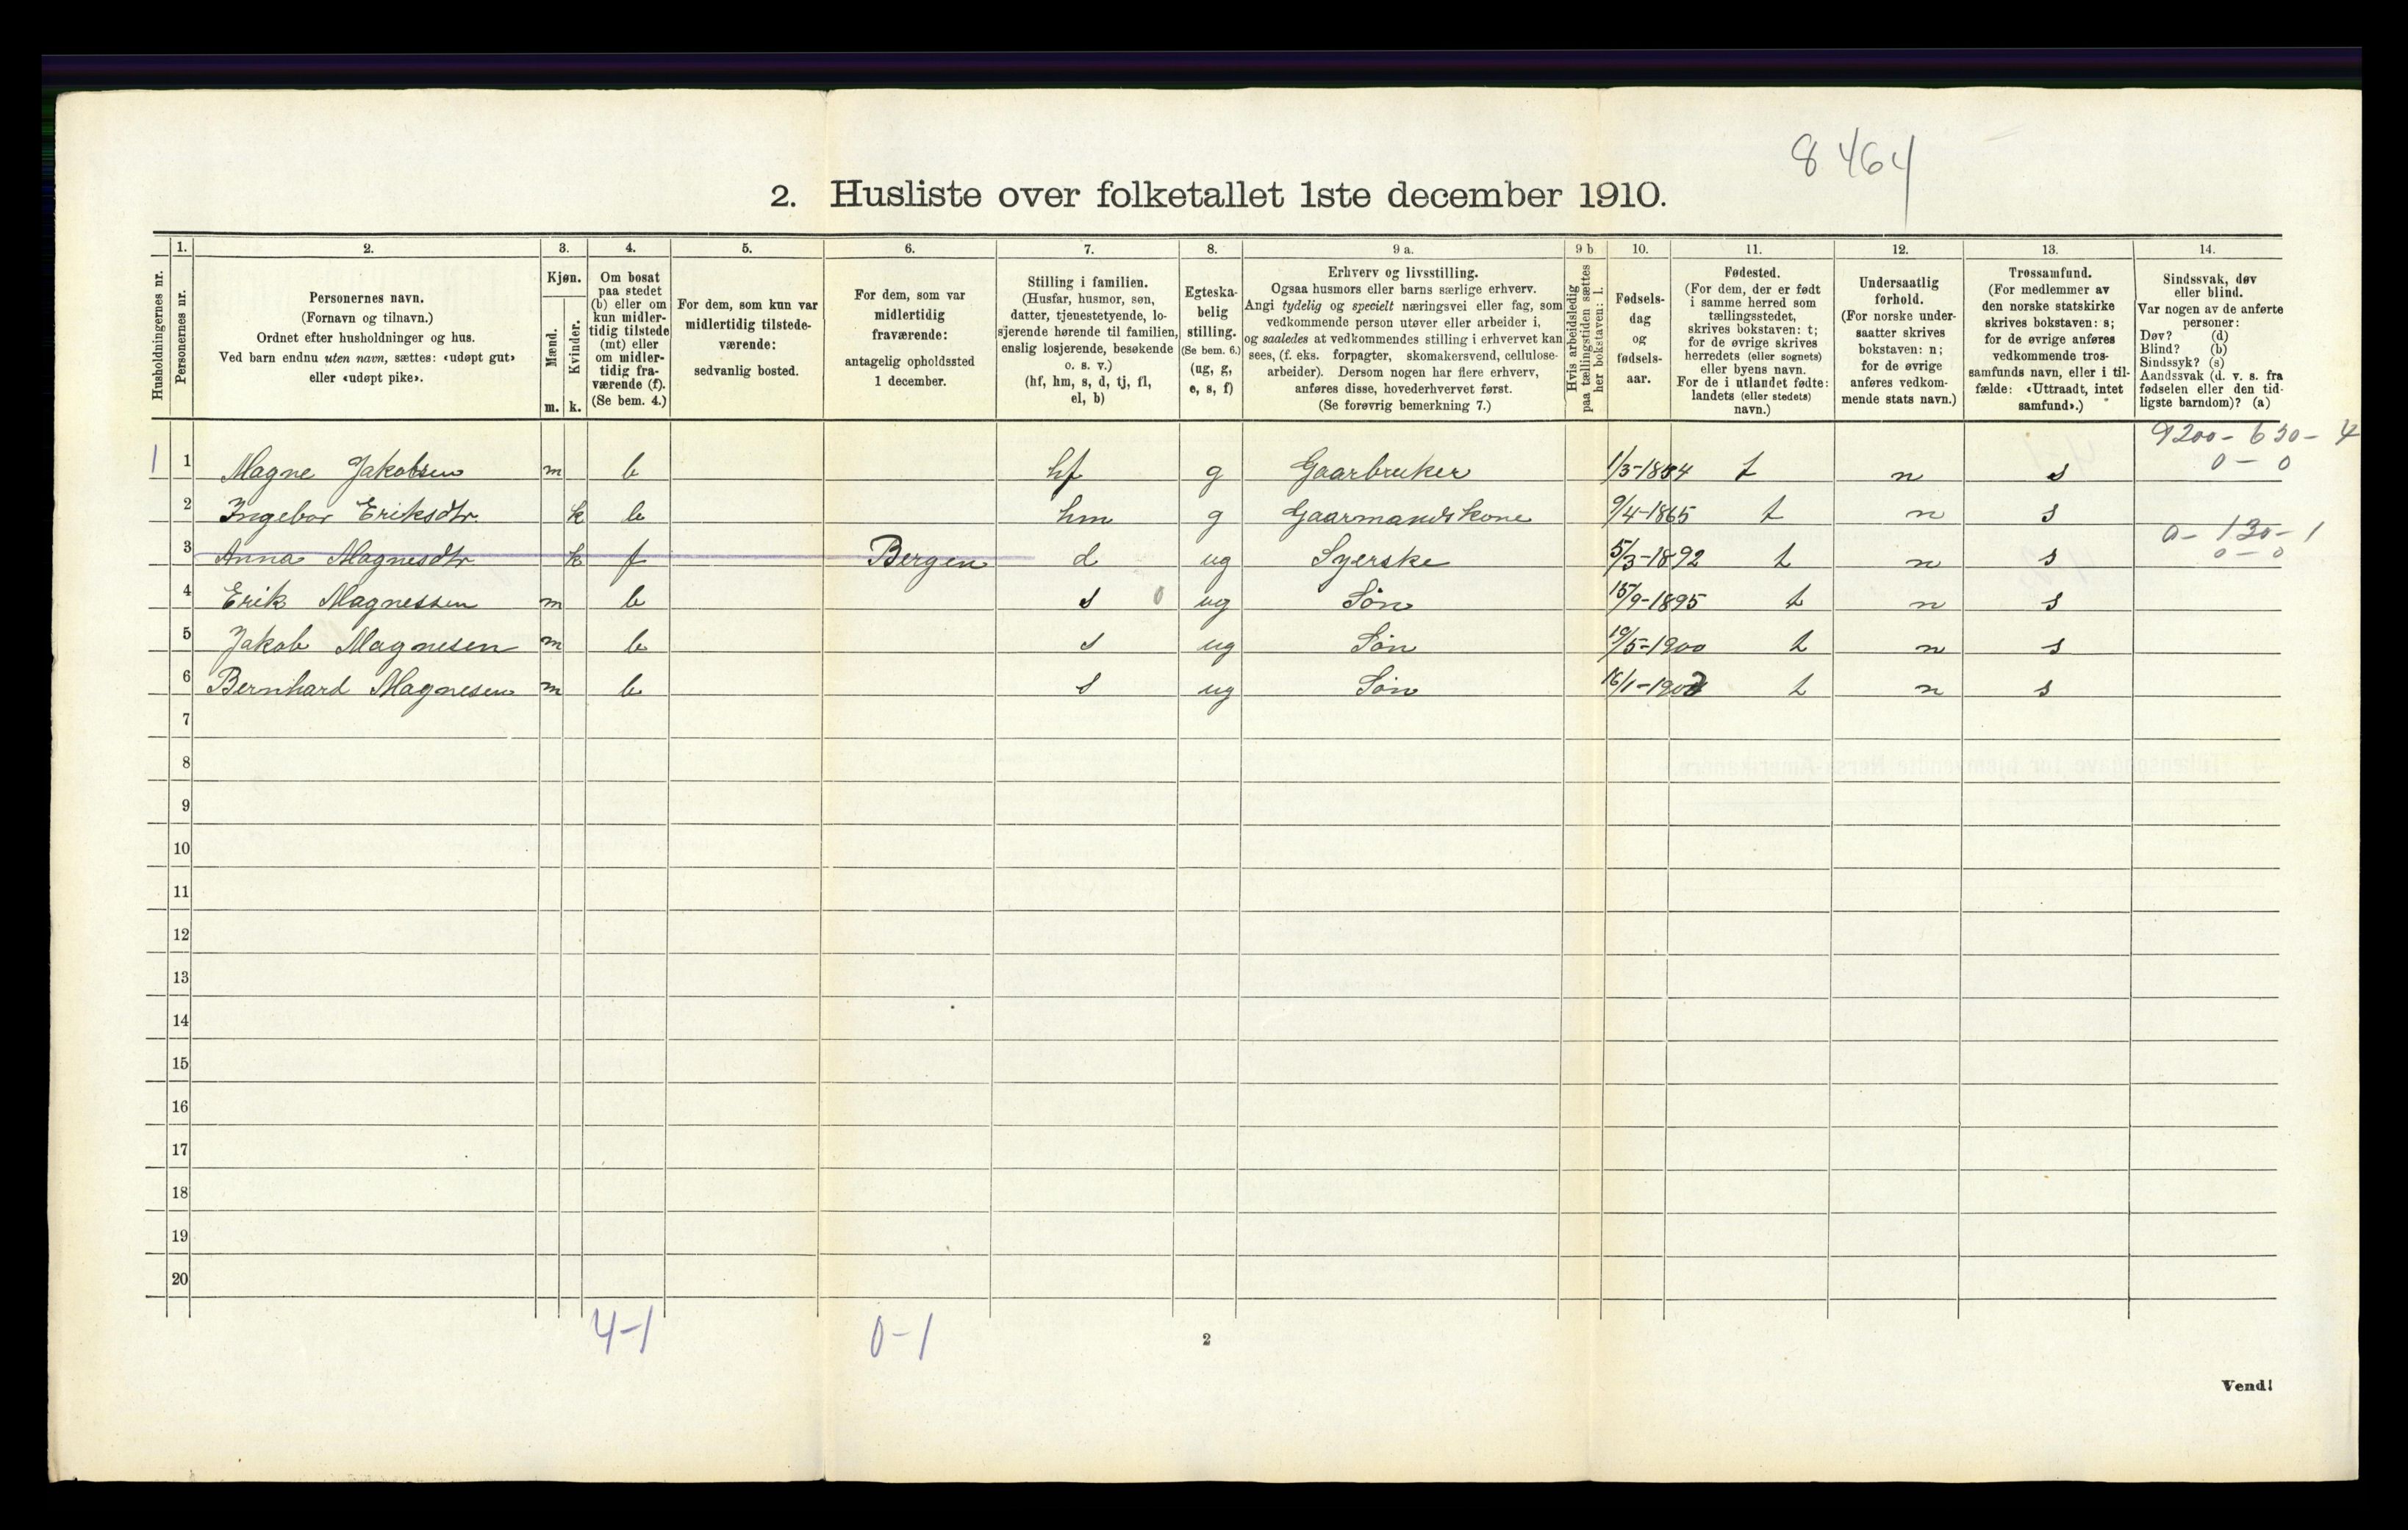 8 464
2. Husliste over folketallet 1ste december 1910.
Husholdningernes nr.
1.
Personernes nr.
2.
Personernes navn.
(Fornavn og tilnavn.)
Ordnet efter husholdninger og hus.
Ved barn endnu uten navn, sættes: «udøpt gut»
eller «udøpt pike».
3.
Kjøn.
Mænd.
Kvinder.
m. k.
4.
Om bosat
paa stedet
(b) eller om
kun midler-
tidig tilstede
(mt) eller
om midler-
tidig fra-
værende (f).
(Se bem. 4.)
5.
For dem, som kun var
midlertidig tilstede-
værende:
sedvanlig bosted.
6.
For dem, som var
midlertidig
fraværende:
antagelig opholdssted
1 december.
7.
Stilling i familien.
(Husfar, husmor, søn,
datter, tjenestetyende, lo-
sjerende hørende til familien,
enslig losjerende, besøkende
o. s. v.)
(hf, hm, s, d, tj, fl,
el, b)
8.
Egteska-
belig
stilling.
(Se bem. 6.)
(ug, g,
e, s, f)
9 a.
Erhverv og livsstilling.
Ogsaa husmors eller barns særlige erhverv.
Angi tydelig og specielt næringsvei eller fag, som
vedkommende person utøver eller arbeider i,
og saaledes at vedkommendes stilling i erhvervet kan
sees, (f. eks. forpagter, skomakersvend, cellulose-
arbeider). Dersom nogen har flere erhverv,
anføres disse, hovederhvervet først.
(Se forøvrig bemerkning 7.)
9 b
Hvis arbeidsledig
paa tællingstiden sættes
her bokstaven: l.
10.
Fødsels-
dag
og
fødsels-
aar.
11.
Fødested.
(For dem, der er født
i samme herred som
tællingsstedet,
skrives bokstaven: t;
for de øvrige skrives
herredets (eller sognets)
eller byens navn.
For de i utlandet fødte:
landets (eller stedets)
navn.)
12.
Undersaatlig
forhold.
(For norske under-
saatter skrives
bokstaven: n;
for de øvrige
anføres vedkom-
mende stats navn.)
13.
Trossamfund.
(For medlemmer av
den norske statskirke
skrives bokstaven: s;
for de øvrige anføres
vedkommende tros-
samfunds navn, eller i til-
fælde: «Uttraadt, intet
samfund».)
14.
Sindssvak, døv
eller blind.
Var nogen av de anførte
personer:
Døv? (d)
Blind? (b)
Sindssyk? (s)
Aandssvak (d. v. s. fra
fødselen eller den tid-
ligste barndom)? (a)
9200 - 630 - 4
0 - 0
1 1 Magne Jakobsen m b hf g Gaarbruker 1/3-1854 t n s
2 Ingebor Eriksdtr k b hm g Gaarmandskone 9/4-1865 t n s
0 - 130 - 1
0 - 0
3 Anna Magnesdtr k f Bergen d ug Syerske 5/3-1892 t n s
4 Erik Magnessen m b s 0 ug Søn 15/9-1895 t n s
5 Jakob Magnesen m b s ug Søn 19/5-1900 t n s
6 Bernhard Magnesen m b s ug Søn 16/1-1903 t n s
7
8
9
10
11
12
13
14
15
16
17
18
19
20
4-1 0-1
2
Vend!